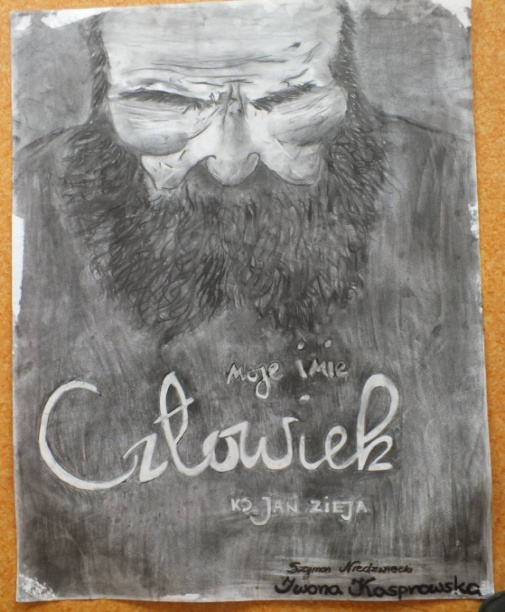 Moje imię
Człowiek
KS. JAN ZIEJA
Szymon
Iwona Kasprowska